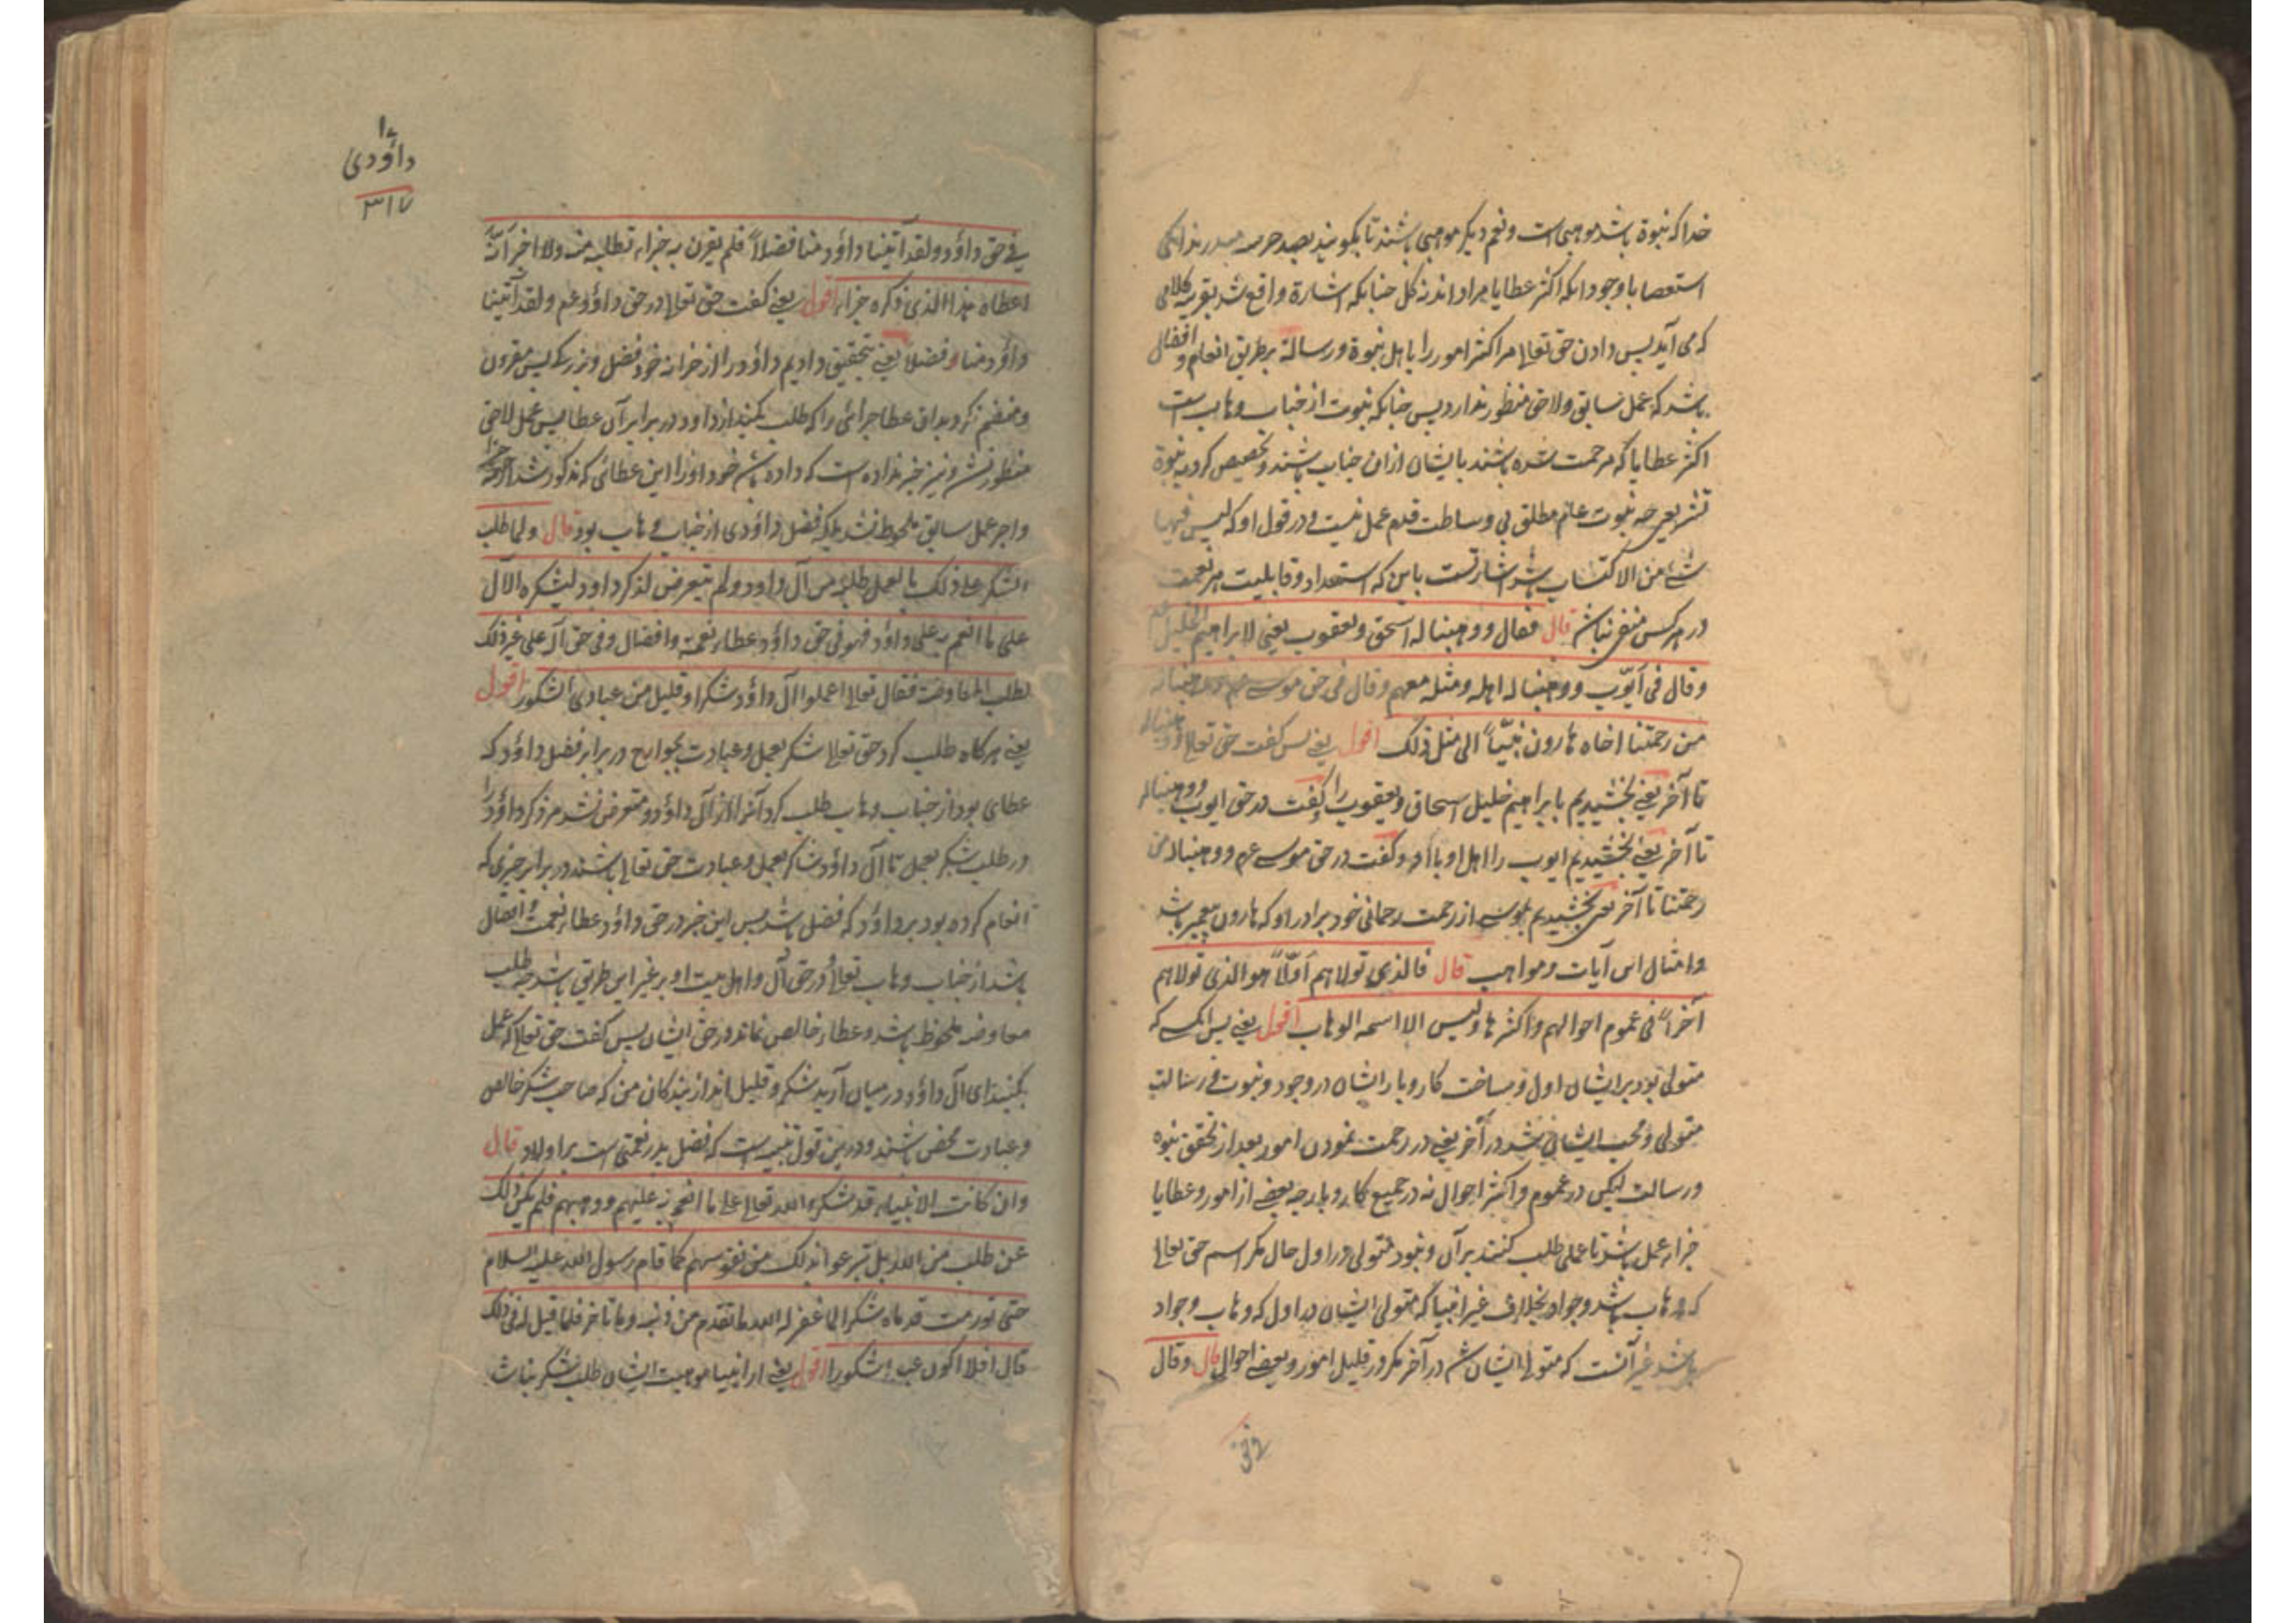 خدا که نبوة باشد موهبی است و نعم دیکر موهبی باشند تا بکویند بصد حرمه
استعصا با وجود انکه اکثر عطایا مراد اند نه کل چنانکه اشارة واقع شد بقرینه کلامی
که می آید پس دادن حق تعالی مر اکثر امور را باهل نبوة و رسالة بر طریق انعام و افضال
باشد که عمل سابق و لاحق منظور ندارد پس چنانکه نبوت از جناب وهاب است
اکثر عطایا که مرحمت شده باشند بایشان ازان جناب باشند و تخصیص کرد به نبوة
تشریعی چه نبوت عام مطلق بی وساطت قدم عمل نیست و در قول او که لیس فیها
شئ من الاکتساب اشارتست باین که استعداد و قابلیت هر نعمت
در هر کس منفی نباشد قال فقال ووهبنا له اسحق ویعقوب یعنی لابراهیم الخلیل
وقال فی ایّوب ووهبنا له اهله ومثله معهم وقال فی حق موسی عم ووهبنا له
من رحمتنا اخاه هارون نبیّاً الی مثل ذلک اقول یعنی پس کفت حق تعالی ووهبنا له
تا آخر یعنی بخشیدیم بابراهیم خلیل اسحاق و یعقوب را و کفت در حق ایوب ووهبنا له
تا آخر یعنی بخشیدیم ایوب را اهل او با او و کفت در حق موسی عم ووهبنا له من
رحمتنا تا آخر یعنی بخشیدیم بموسی از رحمت رحمانی خود برادر او که هارون پیغمبر باشد
و امثال این آیات و مواهب قال فالذی تولاهم اوّلاً هو الذی تولاهم
آخراً فی عموم احوالهم واکثرها ولیس الا اسمه الوهاب اقول یعنی پس آنکسی که
متولی بود بر ایشان اول در ساخت کار و بار ایشان در وجود و نبوت و رسالت
متولی و محب ایشان شد در آخر یعنی در رحمت نمودن امور بعد از تحقق نبوة
و رسالت لیکن در عموم و اکثر احوال نه در جمیع کار و بار چه بعضی از امور و عطایا
جزاء عمل باشد تا عملی طلب کنند بر آن و نبود متولی در اول حال مکر اسم حق تعالی
که وهاب باشد و جواد بخلاف غیر انبیا که متولی ایشان در اول که وهاب و جواد
باشد غیر آنست که متولی ایشان شد در آخر مکر در قلیل امور و بعضی احوال قال وقال
داؤدی
۳۱۷
فی حق داؤد ولقد آتینا داؤد منا فضلاً فلم یقرن به جزاء یطلبه منه ولا اخبر انّه
اعطاه هذا الذی ذکره جزاء اقول یعنی کفت حق تعالی در حق داؤد عم ولقد آتینا
داؤد منا فضلاً یعنی بتحقیق دادیم داؤد را از خزانه خود فضل و بزرکی پس مقرون
و منضم نکرد بدان عطا جزائی را که طلب بکند از داود در برابر آن عطا پس عمل لاحق
منظور نشد و نیز خبر نداده است که داده باشم خود او را این عطائی که مذکور شد از جهة جزا
و اجر عمل سابق ملحوظ نشد بلکه فضل داؤدی از جناب وهاب بود قال ولما طلب
الشکر علی ذلک بالعمل طلبه من آل داود ولم یتعرض لذکر داود لیشکره الآل
علی ما انعم به علی داؤد فهو فی حق داؤد عطاء نعمة وافضال وفی حق آله علی غیر ذلک
لطلب المعاوضة فقال تعالی اعملوا آل داؤد شکرا وقلیل من عبادی الشکور اقول
یعنی هرکاه طلب کرد حق تعالی شکر بعمل و عبادت بجوارح در برابر فضل داؤد که
عطای بود از جناب وهاب طلب کرد آنرا از آل داؤد و متعرض نشد مر ذکر داؤد را
در طلب شکر بعمل تا آل داؤد شاکر بعمل و عبادت حق تعالی باشند در برابر چیزی که
انعام کرده بود بر داؤد که فضل باشد پس این خبر در حق داؤد عطاء نعمت و افضال
باشد از جناب وهاب تعالی و در حق آل و اهل بیت او بر غیر این طریق باشد چه طلب
معاوضه ملحوظ باشد و عطاء خالص نماند در حق ایشان پس کفت حق تعالی که عمل
بکنید ای آل داؤد و در میان آرید شکر و قلیل اند از بندکان من که صاحب شکر خالص
و عبادت محض باشند و درین قول تنبیه است که فضل پدر نعمتی است بر اولاد قال
وان کانت الانبیاء قد شکروا الله تعالی علی ما انعم به علیهم ووهبهم فلم یکن ذلک
عن طلب من الله بل تبرعوا بذلک من نفوسهم کما قام رسول الله علیه السلام
حتی تورمت قدماه شکرا لما غفر له الله ما تقدم من ذنبه وما تاخر فلما قیل له فی ذلک
قال افلا اکون عبدا شکورا اقول یعنی از انبیا موهبت ایشان طلب شکر نباشد